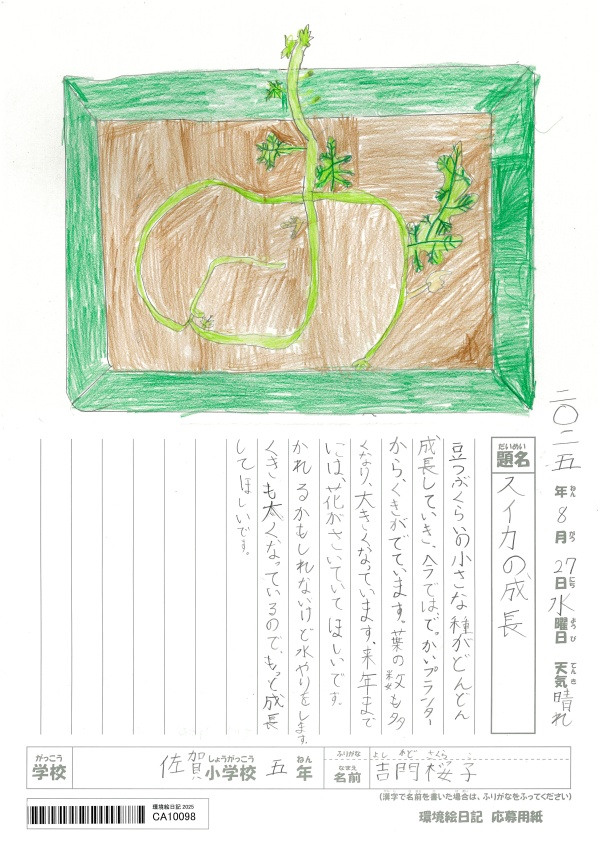 二〇二五年8月27日水曜日 天気晴れ
ねん がつ にち ようび てんき
だいめい
題名 スイカの成長
豆つぶくらいの小さな種がどんどん
成長していき、今では、でっかいプランター
から、くきがでています。葉の数も多
くなり、大きくなっています。来年まで
には、花がさいていてほしいです。
かれるかもしれないけど水やりをします。
くきも太くなっているので、もっと成長
してほしいです。
がっこう しょうがっこう ねん
学校 佐賀小学校 五年
ふりがな よし かど さくら
なまえ
名前 吉門桜子
(漢字で名前を書いた場合は、ふりがなをふってください)
環境絵日記 2025
CA10098
環境絵日記 応募用紙